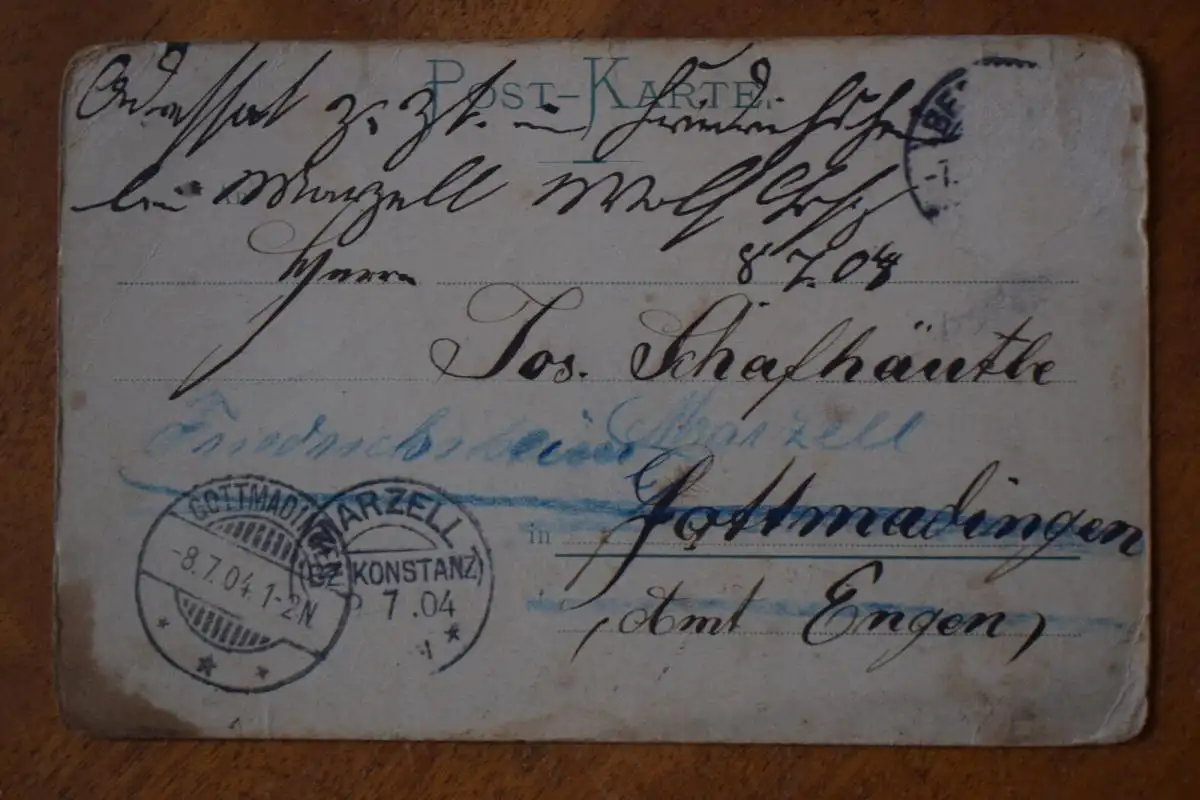 POST-KARTE.
Adressat z. Zt. in Friedrichsheim
bei Marzell
Herrn
8 7.04
Jos. Schafhäutle
Friedrichsheim Marzell
in Gottmadingen
Amt Engen
GOTTMADINGEN
-8.7.04.1-2N
MARZELL
(BZ. KONSTANZ)
7.04